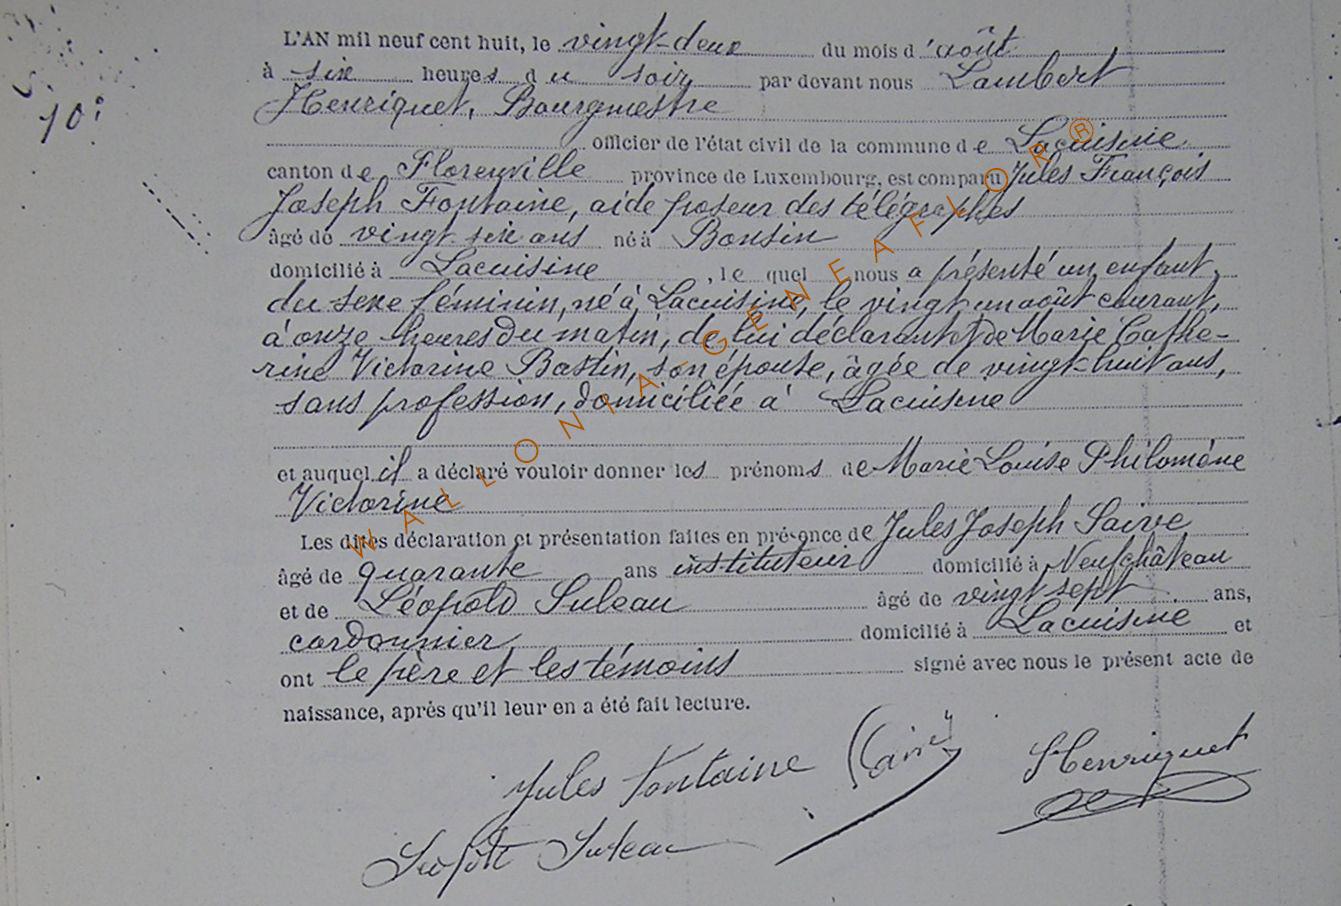 L'AN mil neuf cent huit, le vingt-deux du mois d'août
à six heures du soir par devant nous Lambert
10:
Henriquet, Bourgmestre
officier de l'état civil de la commune de Lacuisine
canton de Florenville province de Luxembourg, est comparu Jules François
Joseph Fontaine, aide poseur des télégraphes
âgé de vingt six ans né à Bonsin
domicilié à Lacuisine, lequel nous a présenté un enfant
du sexe féminin, né à Lacuisine, le vingt un août courant,
à onze heures du matin, de lui déclarant et de Marie Cathe-
rine Victorine Bastin, son épouse, âgée de vingt-huit ans,
sans profession, domiciliée à Lacuisine
et auquel il a déclaré vouloir donner les prénoms de Marie Louise Philomène
Victorine
Les dites déclaration et présentation faites en présence de Jules Joseph Saive
âgé de quarante ans instituteur domicilié à Neufchâteau
et de Léopold Suleau âgé de vingt sept ans,
cordonnier domicilié à Lacuisine et
ont le père et les témoins signé avec nous le présent acte de
naissance, après qu'il leur en a été fait lecture.
Jules Fontaine Henriquet
Léopold Suleau
WALLONIA-GÉNÉAFLOR®